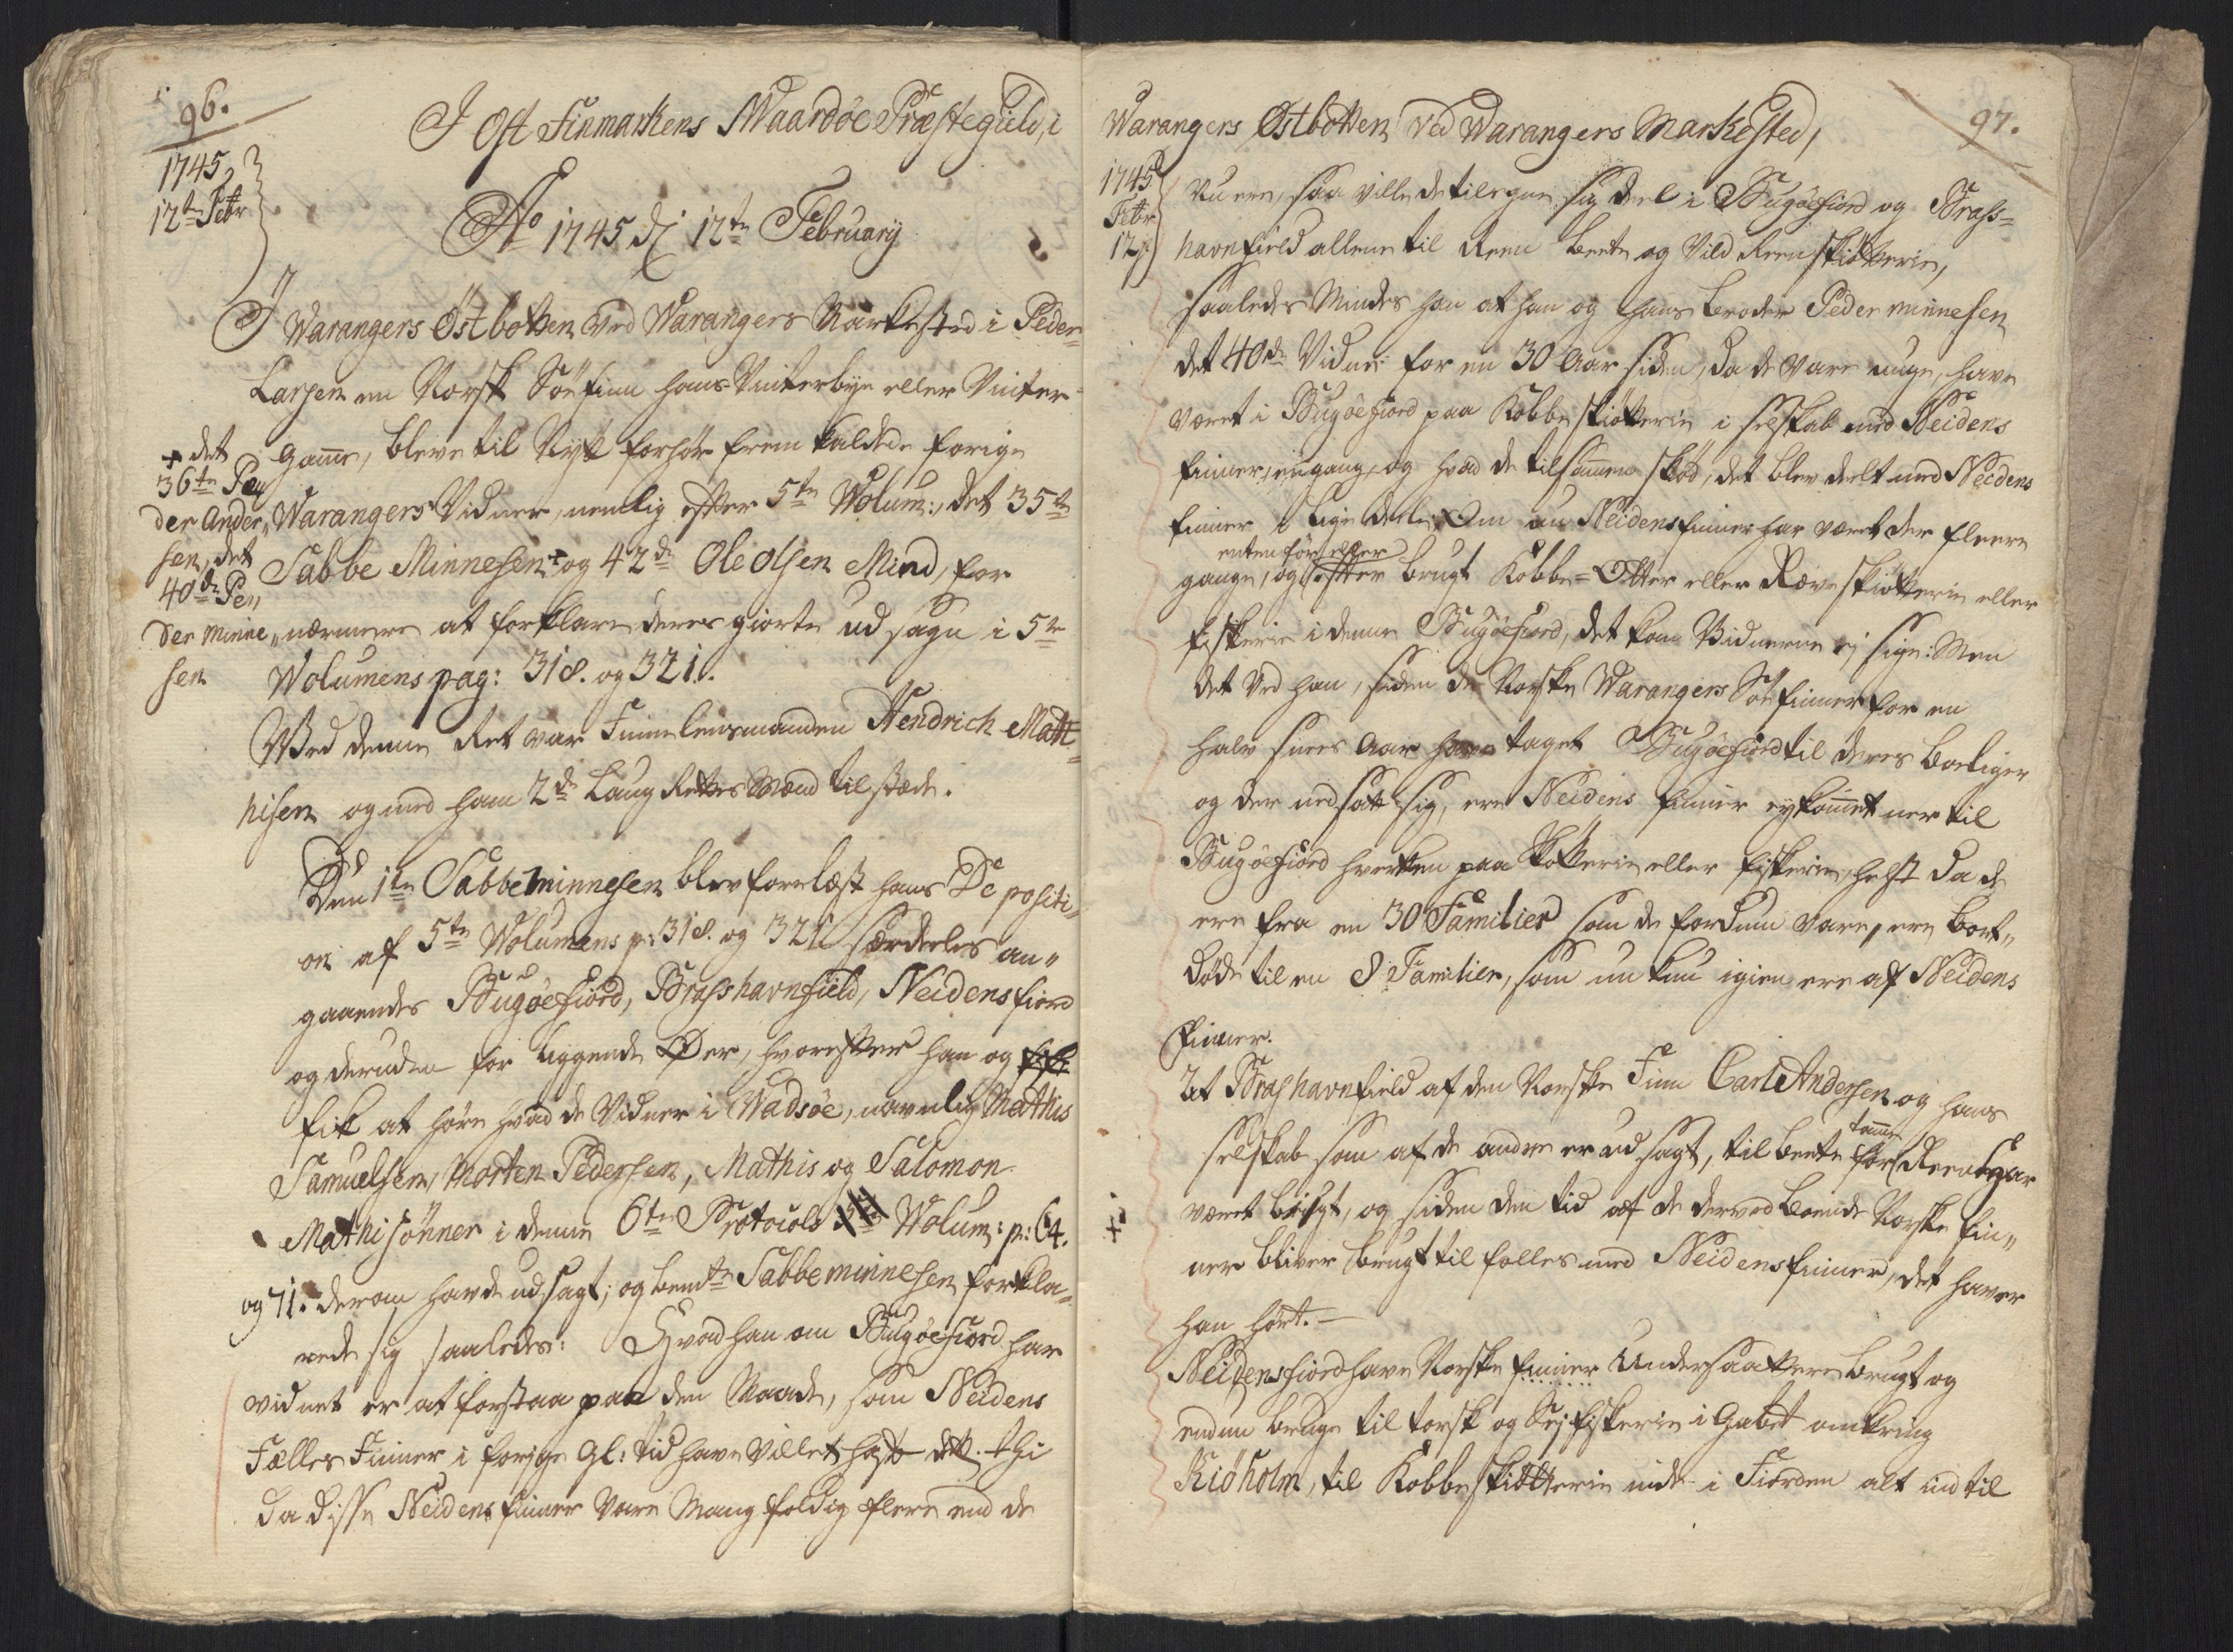 96.
I Ost Finmarkens Waardøe Præstegield, i
1745
12te Febr
Ao 1745 d: 12te February
I Warangers Østbotten ved Warangers Markested i Peder
Larsen en Norsk Söefinn hans Vinterbye eller Vinter-
Gamme, bleve til Nytt forhör frem kaldede forige
+ det
36te Pe
der Ander„
sen, det
40de Pe„
der Minne„
sen
Warangers Vidner, nemlig efter 5te Wolum:, det 35te
Sabbe Minnesen + og 42de Ole Olsen Mind, for
nærmere at forklare deres giorte udsagn i 5te
Wolumens pag: 318. og 321.
Wed denne Ret var Finne lensmanden Hendrich Matt-
hisen og med ham 2de Laug Rettes Mænd tilstæde.
Den 1te Sabbe Minnesen blev forelæst hans De positi-
on af 5te Wolumens p: 318. og 321 særdeles an„
gaaende Bugöefiord, Brasshavnfield, Neidensfiord
og deruden for liggende Øer, hvorefter han og
fik at höre hvad de Vidner i Wadsöe, navnlig Mathis
Samuelsen, Morten Pedersen, Mathis og Salomon
Mathisönner i denne 6te Protocols Wolum: p: 64.
og 71. derom havde udsagt; og bemte Sabbe Minnesen forkla-
rede sig saaledes: Hvad han om Bugöefiord har
vidnet er at forstaa paa den Maade, som Neidens
Fælles Finner i forige gl: tid have villet hafve det. thi
da disse Neidens finner vare Mangfoldig flere end de
Warangers Østbotten ved Warangers Markested,
97.
1745
Febr
12te
nu ere, saa ville de tilegne sig deel i Bugöefiord og Brass-
havnfield allene til Reen beete og Vild Reen skiøtterie,
saaledes Mindes han at han og hans broder Peder Minnesen
det 40de Vidne for en 30 Aar siden, da de vare unge, have
været i Bugöefiord paa Kobbeskiøtterie i selskab med Neidens
finner, engang, og hvad de tilsammen skiöd, det blev deelt med Neidens
finner i lige deele; Om nu Neidens finner har været der fleere
enten för eller
gange, og efter brugt Kobbe- Otter eller Ræve skiøtterie eller
fiskerie i denne Bugöefiord, det kan Vidnerne ej sige: Men
det ved han, siden de Norske Warangers Söefinner for en
halv snees Aar have taget Bugöefiord til deres boeliger
og der nedsatt sig, ere Neidens finner ey kommet ner til
Bugöefiord hverken paa Skøtterie eller fiskerie, helst da de
ere fra en 30 Familier som de fordum vare, ere bort„
döde til en 8 Familier, som nu kun igien ere af Neidens
finner.
At Brasshavnfield af den Norske Finn Carl Andersen og hans
selskab som af de andre er udsagt, til beete for
tamme
Reensdyr
været brugt, og siden den tid af de derved boende Norske fin„
ner bliver brugt til fælles med Neidens finner, det haver
han hört. —
+
Neidensfiord have Norske finner Undersaattere brugt og
endnu bruge til torsk og Sej fiskerie i Gabet omkring
Kiøholm, til Kobbe skiøtterie inde i Fiorden alt ind til